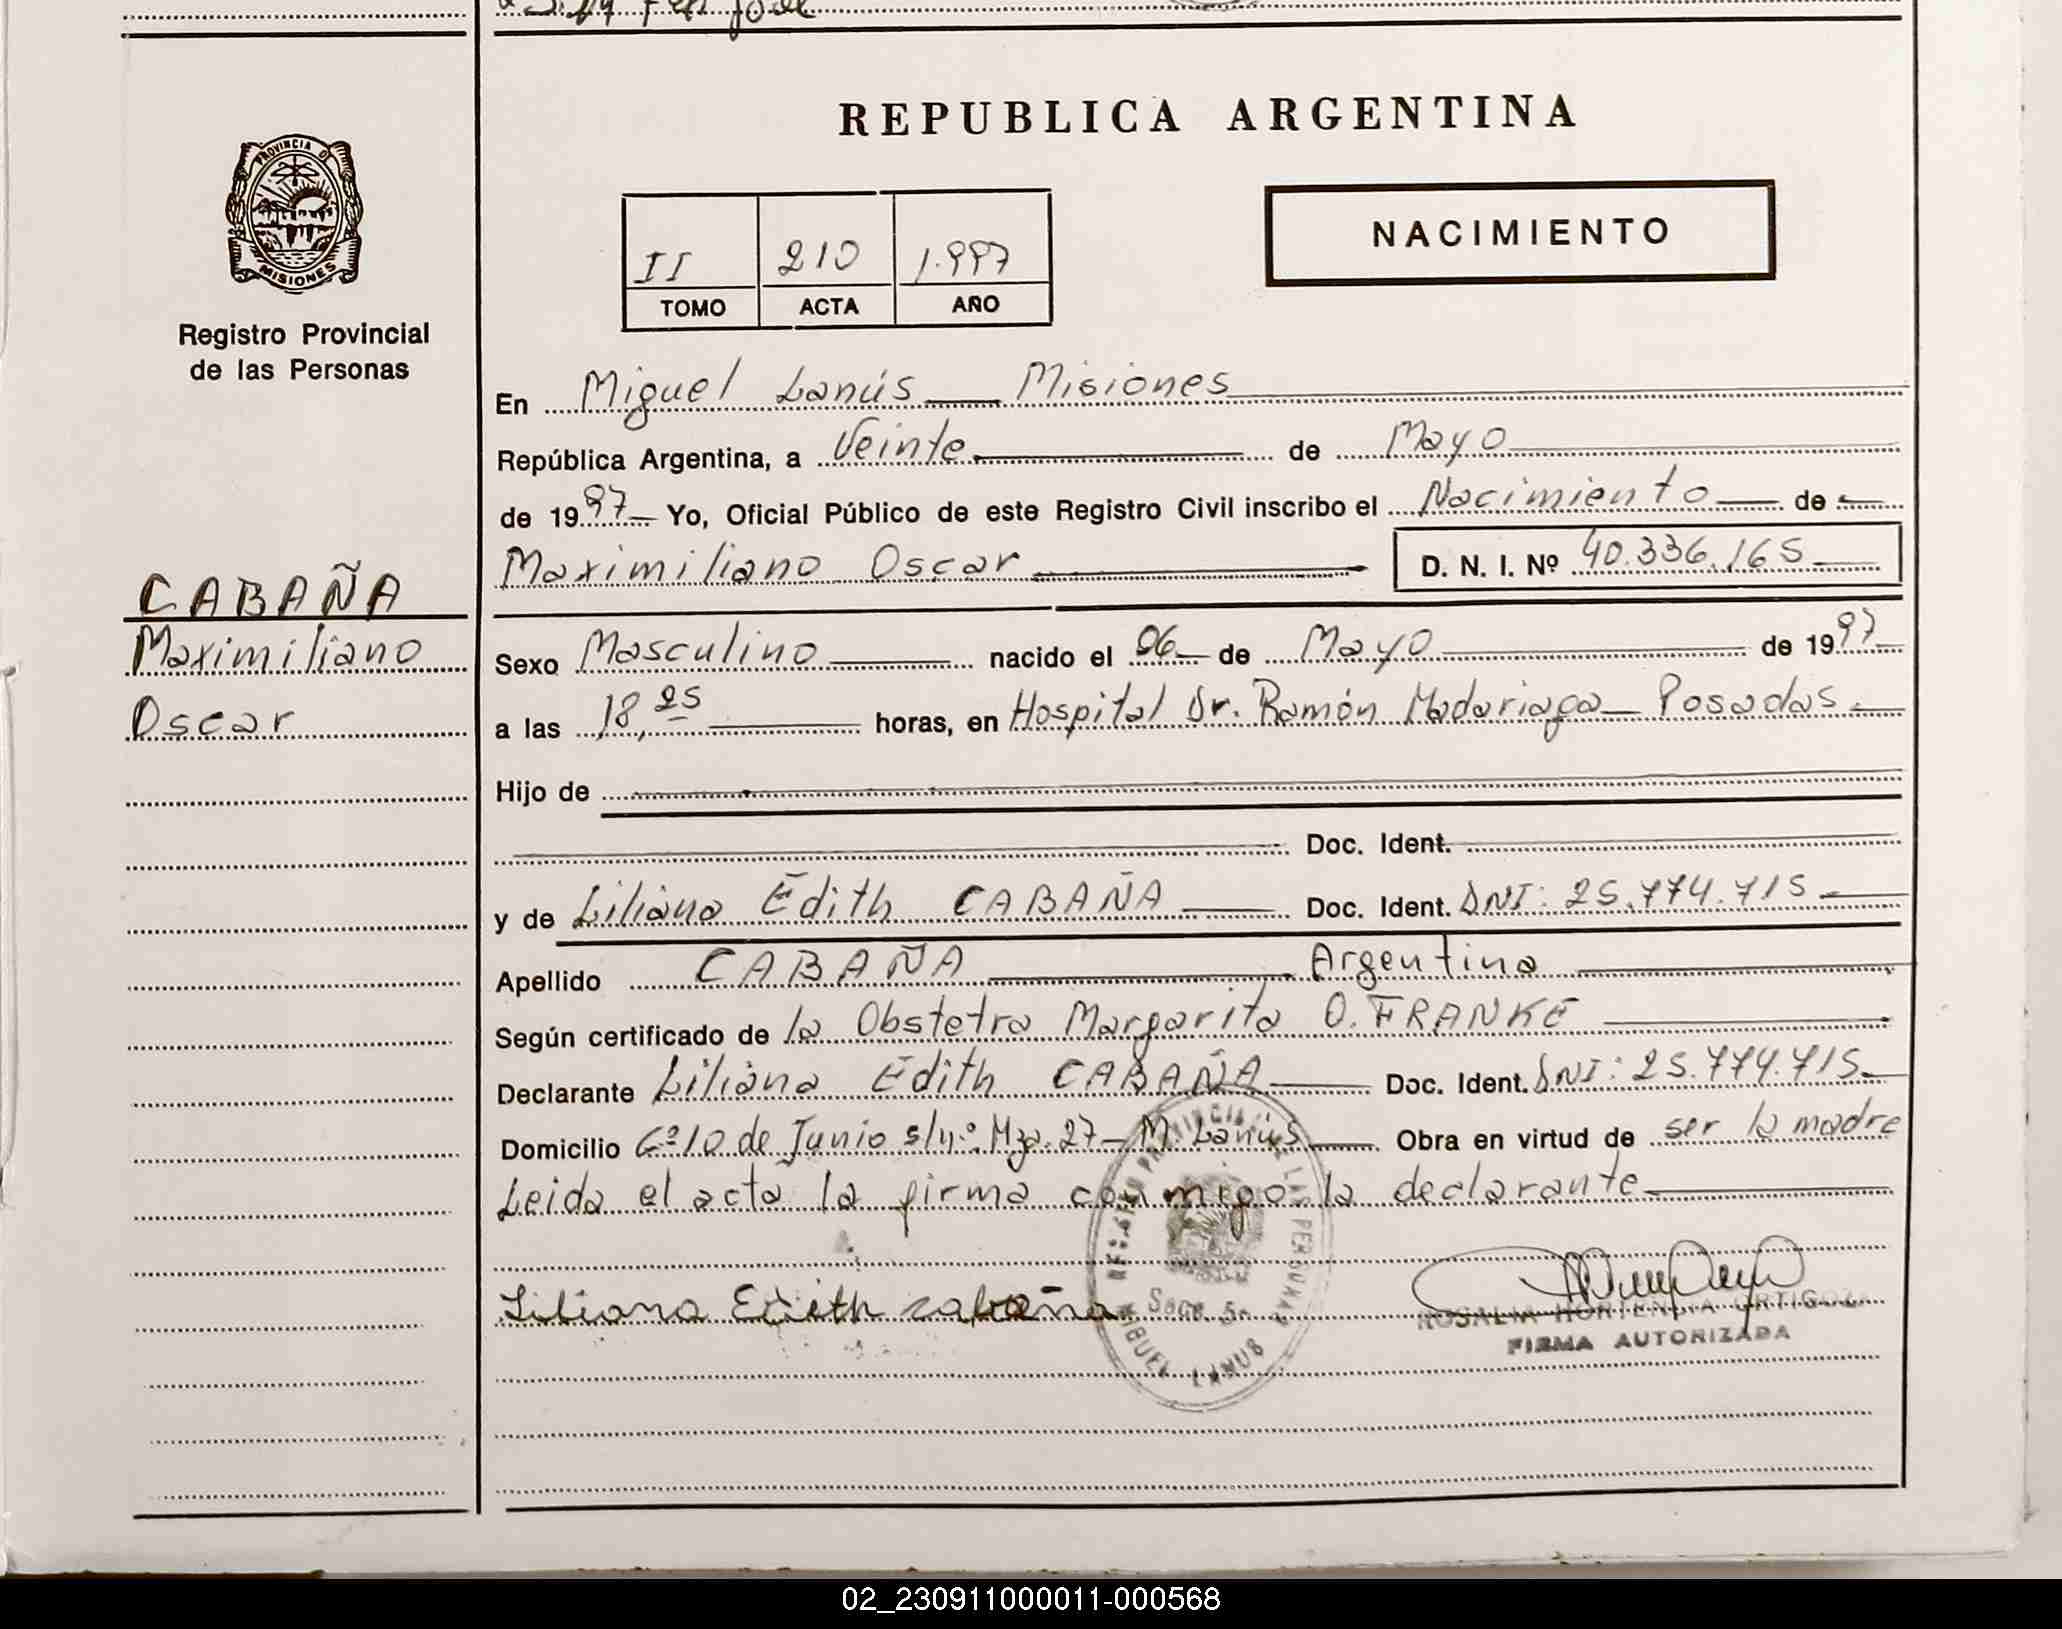 REPUBLICA ARGENTINA
PROVINCIA D
MISIONES
Registro Provincial
de las Personas
NACIMIENTO
II 210 1.997
TOMO ACTA AÑO
En Miguel Lanús Misiones
República Argentina, a Veinte de Mayo
de 1997 Yo, Oficial Público de este Registro Civil inscribo el Nacimiento de
Maximiliano Oscar D. N. I. Nº 40.336.165
CABAÑA
Maximiliano
Oscar
Sexo Masculino nacido el 06 de Mayo de 1997
a las 18,25 horas, en Hospital Dr. Ramón Madariaga Posadas.
Hijo de
Doc. Ident.
y de Liliana Edith CABAÑA Doc. Ident. DNI: 25.774.715
Apellido CABAÑA Argentina
Según certificado de la Obstetra Margarita O. FRANKE
Declarante Liliana Edith CABAÑA Doc. Ident. DNI: 25.774.715
Domicilio Cº 10 de Junio s/nº. Mza. 27 - M. Lanús Obra en virtud de ser la madre
Leida el acta la firma conmigo la declarante
Liliana Edith cabaña
ROSALIA HORTENCIA ORTIGOZA
FIRMA AUTORIZADA
LANUS
02_230911000011-000568